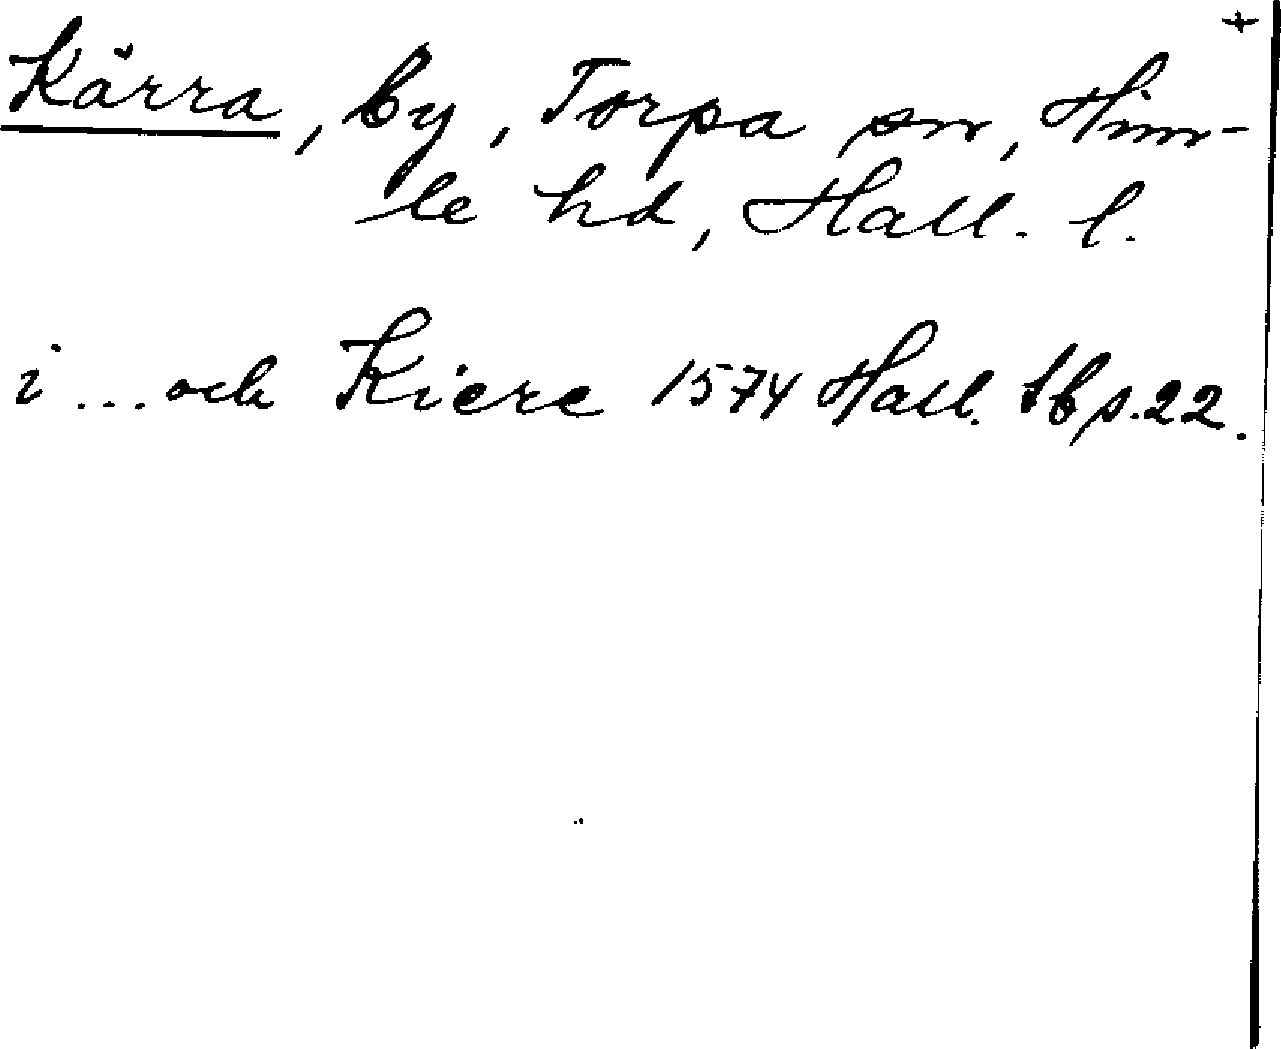 +
Kärra, by, Torpa sn, Him-
le hd, Hall. l.
i ... och Kiere 1574 Hall. tb s. 22.